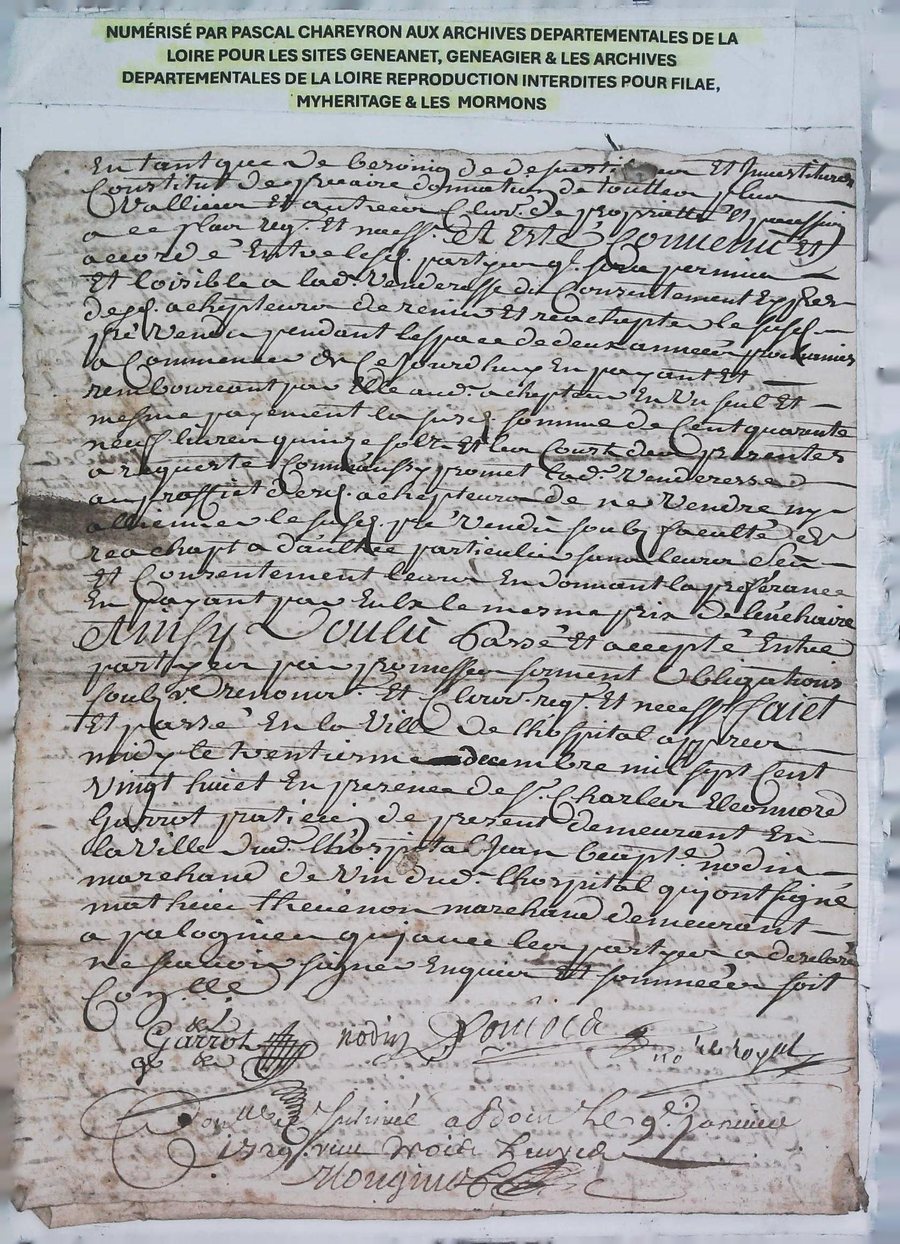 NUMÉRISÉ PAR PASCAL CHAREYRON AUX ARCHIVES DEPARTEMENTALES DE LA
LOIRE POUR LES SITES GENEANET, GENEAGIER & LES ARCHIVES
DEPARTEMENTALES DE LA LOIRE REPRODUCTION INTERDITES POUR FILAE,
MYHERITAGE & LES MORMONS
En tant que de besoing de Et Investitures
Constitut de precaire donnation de toutte plus
Vallieur Et autres Claus. de propriette et
a ce plair req. Et necess. Et Esté Convenu Et
accordé Entre les partyes q. sera permis
Et loisible a lad. Venderesse du Consentement Expres
desd. achepteurs de remir Et reachepter le susd.
pré Vendu pendant lespace de deux années prochaines
a Commencer de Cejourdhuy En payant Et
rembourceant par Elle aud. achepteur En Un seul Et
mesme payement la susd. somme de Cent quarante
neuf livres quinze solz Et les Couts des presentes
a requeste Comme aussy promet lad. Venderesse
au proffict desd. achepteurs de ne Vendre ny
alliener le susd. pré Vendu soubz faculté de
reachapt a daultre particulier sans leurs sceu
Et Consentement leurs En donnant la préférance
En payant par Eulx le mesme prix de lencherre
Ainsy Voulu Passé Et accepté Entre
partyes par promesses serment Obligations
soubz renonc. Et Claus. req. Et necess. Faict
Et passé En la Ville de lhospital appres
midy le trentieme decembre mil sept Cent
Vingt huict En presence de Sr. Charles Eleonnord
Garrot praticien de present demeurant En
la Ville dud. lhospital Jean bapte. nodin
marchand de Vin dud. lhospital quy ont signé
mathieu thevenon marchand demeurant
a palognieu quy avec les partyes a declaré
ne scavoir signer Enquis Et sommées soit
Conllé
Garrot nodin Ponsoda
no. royal
Controllé Et Insinué a Boen Le 9e. Janvier
1729 reçu trois Livres